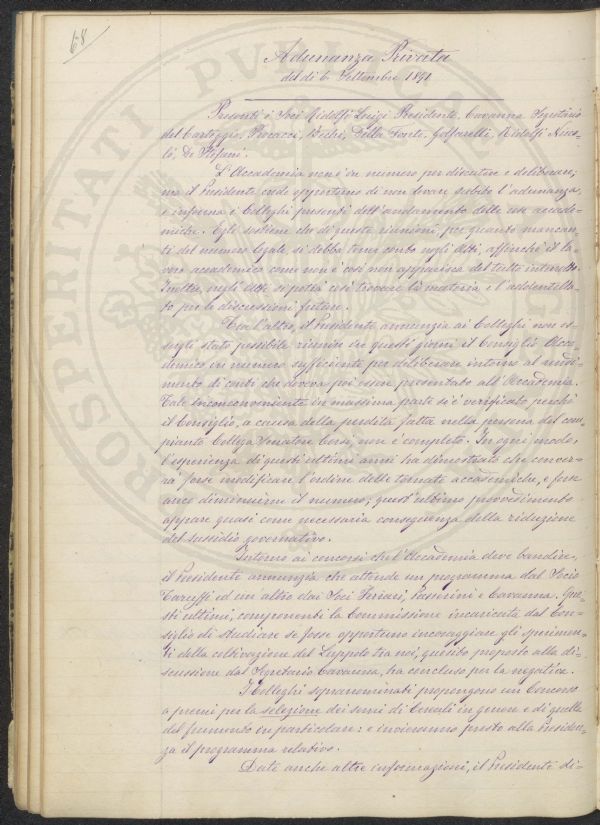 68
Adunanza Privata
del dì 6 Settembre 1891
Presenti i Soci Ridolfi Luigi Presidente, Cavanna Segretario
del Carteggio, Procacci, Bechi, Della Fonte, Golfarelli, Ridolfi Nico-
lò, De Stefani.
L'Accademia non è in numero per discutere e deliberare;
ma il Presidente crede opportuno di non levare subito l'adunanza,
e informa i Colleghi presenti dell'andamento delle cose accade-
miche. Egli sostiene che di queste riunioni, per quanto mancan-
ti del numero legale, si debba tener conto negli Atti, affinchè il la-
voro accademico come non è così non apparisca del tutto interrotto.
Inoltre, negli Atti si potrà così trovare la materia e l'addentella-
to per le discussioni future.
Tra l'altro, il Presidente annunzia ai Colleghi non es-
sergli stato possibile riunire in questi giorni il Consiglio Acca-
demico in numero sufficiente per deliberare intorno al rendi-
mento di conti che doveva poi essere presentato all'Accademia.
Tale inconveniente in massima parte si è verificato perchè
il Consiglio, a causa della perdita fatta nella persona del com-
pianto Collega Senatore non è completo. In ogni modo,
l'esperienza di questi ultimi anni ha dimostrato che conver-
rà forse modificare l'ordine delle tornate accademiche, e forse
anco diminuirne il numero; quest'ultimo provvedimento
appare quasi come necessaria conseguenza della riduzione
del sussidio governativo.
Intorno ai concorsi che l'Accademia deve bandire,
il Presidente annunzia che attende un programma dal Socio
Caruso ed un altro dai Soci Ferrari, Passerini e Cavanna. Que-
sti ultimi, componenti la Commissione incaricata dal Con-
siglio di studiare se fosse opportuno incoraggiare gli sperimen-
ti della coltivazione del Luppolo tra noi, quesito proposto alla di-
scussione dal Segretario Cavanna, ha concluso per la negativa.
I Colleghi sopranominati propongono un Concorso
a premi per la selezione dei semi di Cereali in genere e di quelle
del frumento in particolare: e invieranno presto alla Presiden-
za il programma relativo.
Date anche altre informazioni, il Presidente di-